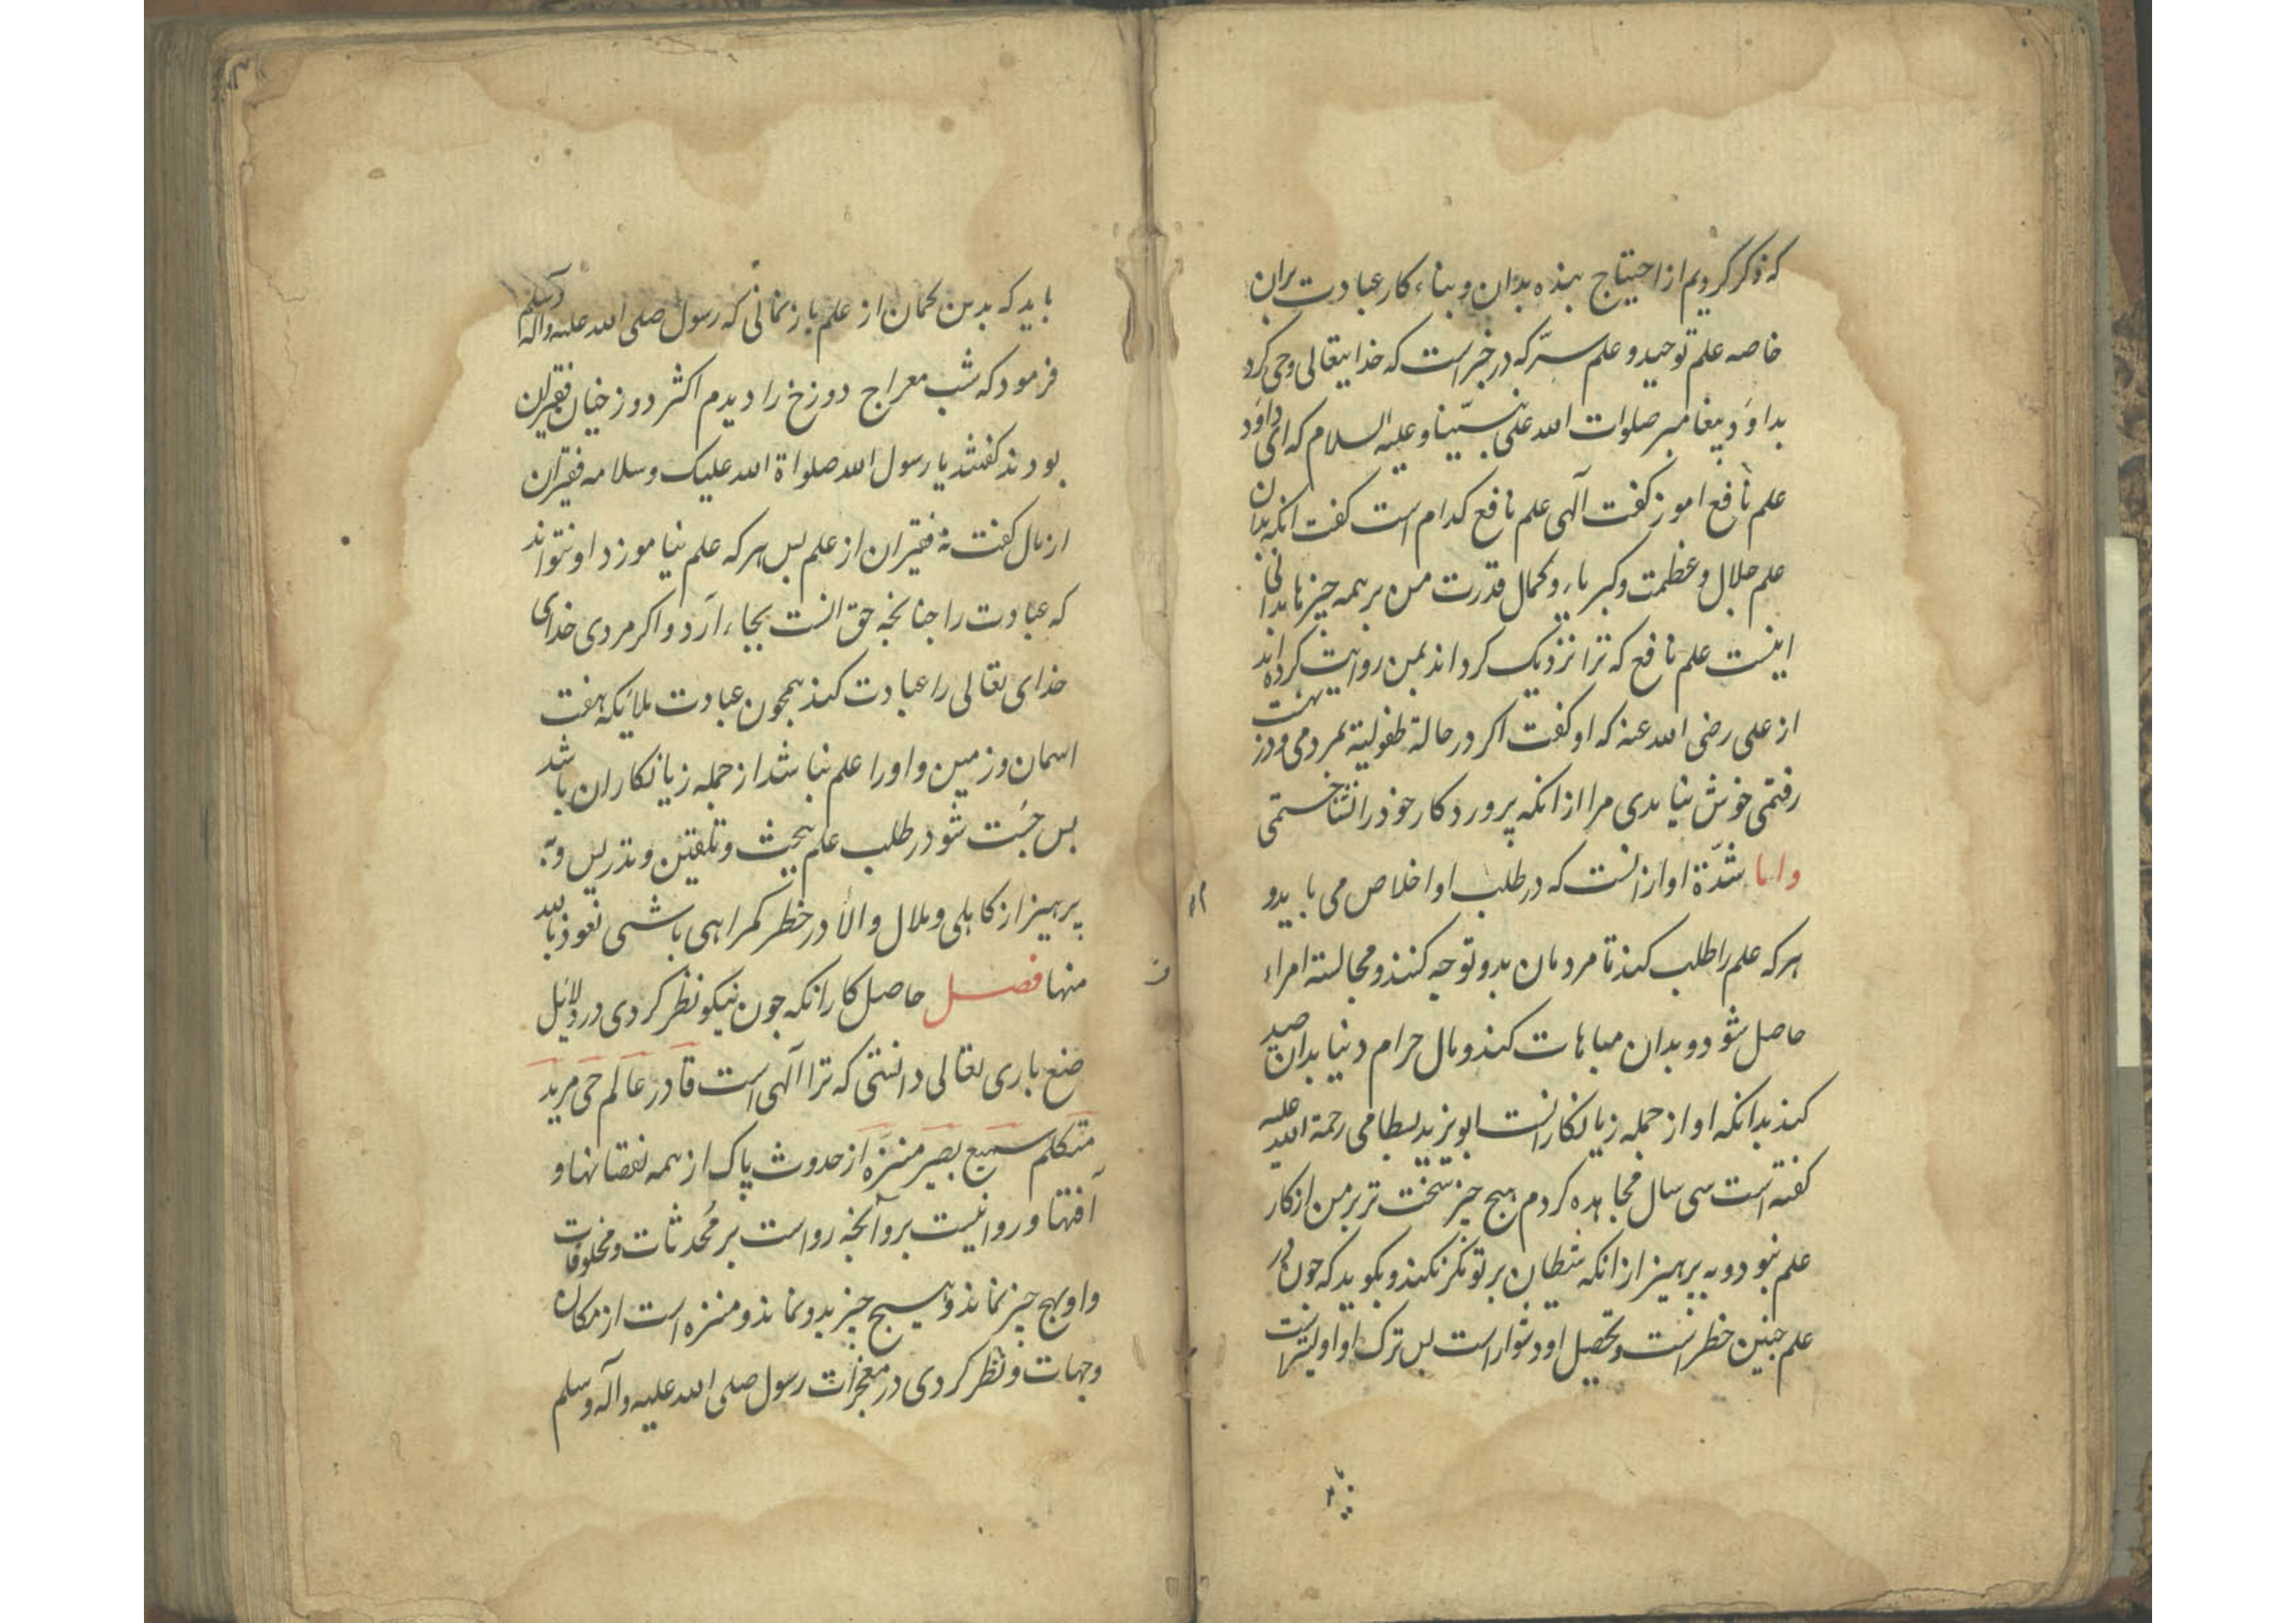 که ذکر کردیم از احتیاج بنده بدان و بناء کار عبادت بران
خاصه علم توحید و علم سرّ که در خبر است که خدایتعالی وحی کرد
بداود پیغامبر صلوات الله علی نبیّنا و علیه السلام که ای داود
علم نافع اموز گفت آلهی علم نافع کدام است گفت انکه بدان
علم جلال و عظمت و کبریاء و کمال قدرت من بر همه چیزها بدانی
اینست علم نافع که ترا نزدیک کرداند بمن روایت کرده اند
از علی رضی الله عنه که او گفت اکر در حالة طفولیة بمردمی و در بهشت
رفتمی خوش نیامدی مرا از انکه پروردکار خود را نشناختمی
واما شدّة او ازانست که در طلب او اخلاص می باید و
هر که علم را طلب کند تا مردمان بدو توجه کنند و مجالسة امراء
حاصل شود و بدان مباهات کند و مال حرام دنیا بدان صید
کند بدانکه او از جمله زیانکارانست ابو یزید بسطامی رحمة الله علیه
گفته است سی سال مجاهده کردم هیچ چیز سخت تر بر من از کار
علم نبود و به پرهیز از انکه شیطان بر تو مکر نکند و بکوید که چون در
علم چنین خطر است و تحصیل او دشوار است پس ترک او اولیتر است
باید که بدین کمان از علم باز نمانی که رسول صلی الله علیه و آله وسلم
فرمود که شب معراج دوزخ را دیدم اکثر دوزخیان فقیران
بودند گفتند یا رسول الله صلواة الله علیک و سلامه فقیران
از مال گفت نه فقیران از علم پس هر که علم نیاموزد او نتواند
که عبادت را چنانچه حق انست بجاء آرد و اکر مردی خدای
خدای تعالی را عبادت کند همچون عبادت ملائکه هفت
اسمان و زمین و او را علم نباشد از جمله زیانکاران باشد
پس چُست شو در طلب علم ببحث و تلقین و تدریس و به
پرهیز از کاهلی و ملال و الا در خطر کمراهی باشی نعوذ بالله
منها فصل حاصل کار انکه چون نیکو نظر کردی در دلائل
صنع باری تعالی دانستی که ترا آلهی است قادر عالم حی مرید
متکلم سمیع بصیر منزّه از حدوث پاک از همه نقصانها و
آفتها و روا نیست برو آنچه رواست بر مُحدثات و مخلوقات
و او بهیچ چیز نماند و هیچ چیز بدو نماند و منزه است از مکان
و جهات و نظر کردی در معجزات رسول صلی الله علیه و آله وسلم